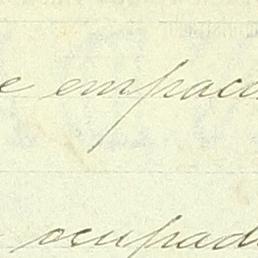 e empaca
ocupad